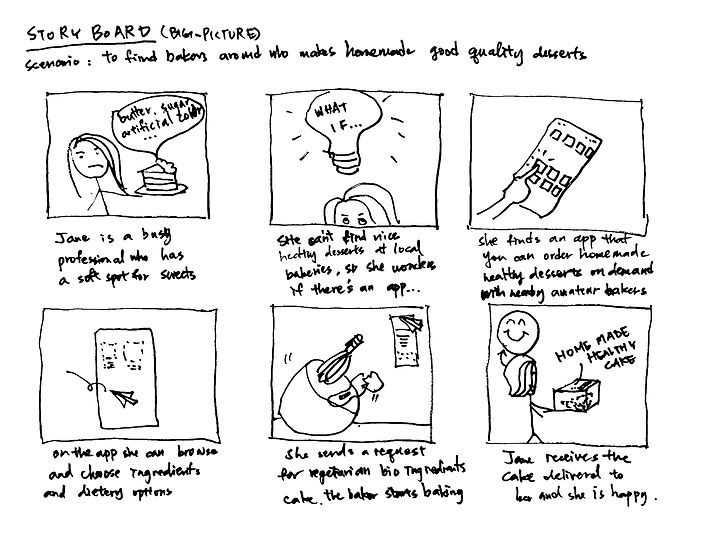 STORY BOARD (BIG-PICTURE)
scenario: to find bakers around who makes homemade good quality desserts
butter, sugar,
artificial color
...
WHAT
IF...
Jane is a busy
professional who has
a soft spot for sweets
She can't find nice
healthy desserts at local
bakeries, so she wonders
if there's an app...
She finds an app that
you can order homemade
healthy desserts on demand
with nearby amateur bakers
HOME MADE
HEALTHY
CAKE
on the app she can browse
and choose ingredients
and dietery options
She sends a request
for vegetarian bio ingredients
cake. the baker starts baking
Jane receives the
cake delivered to
her and she is happy.